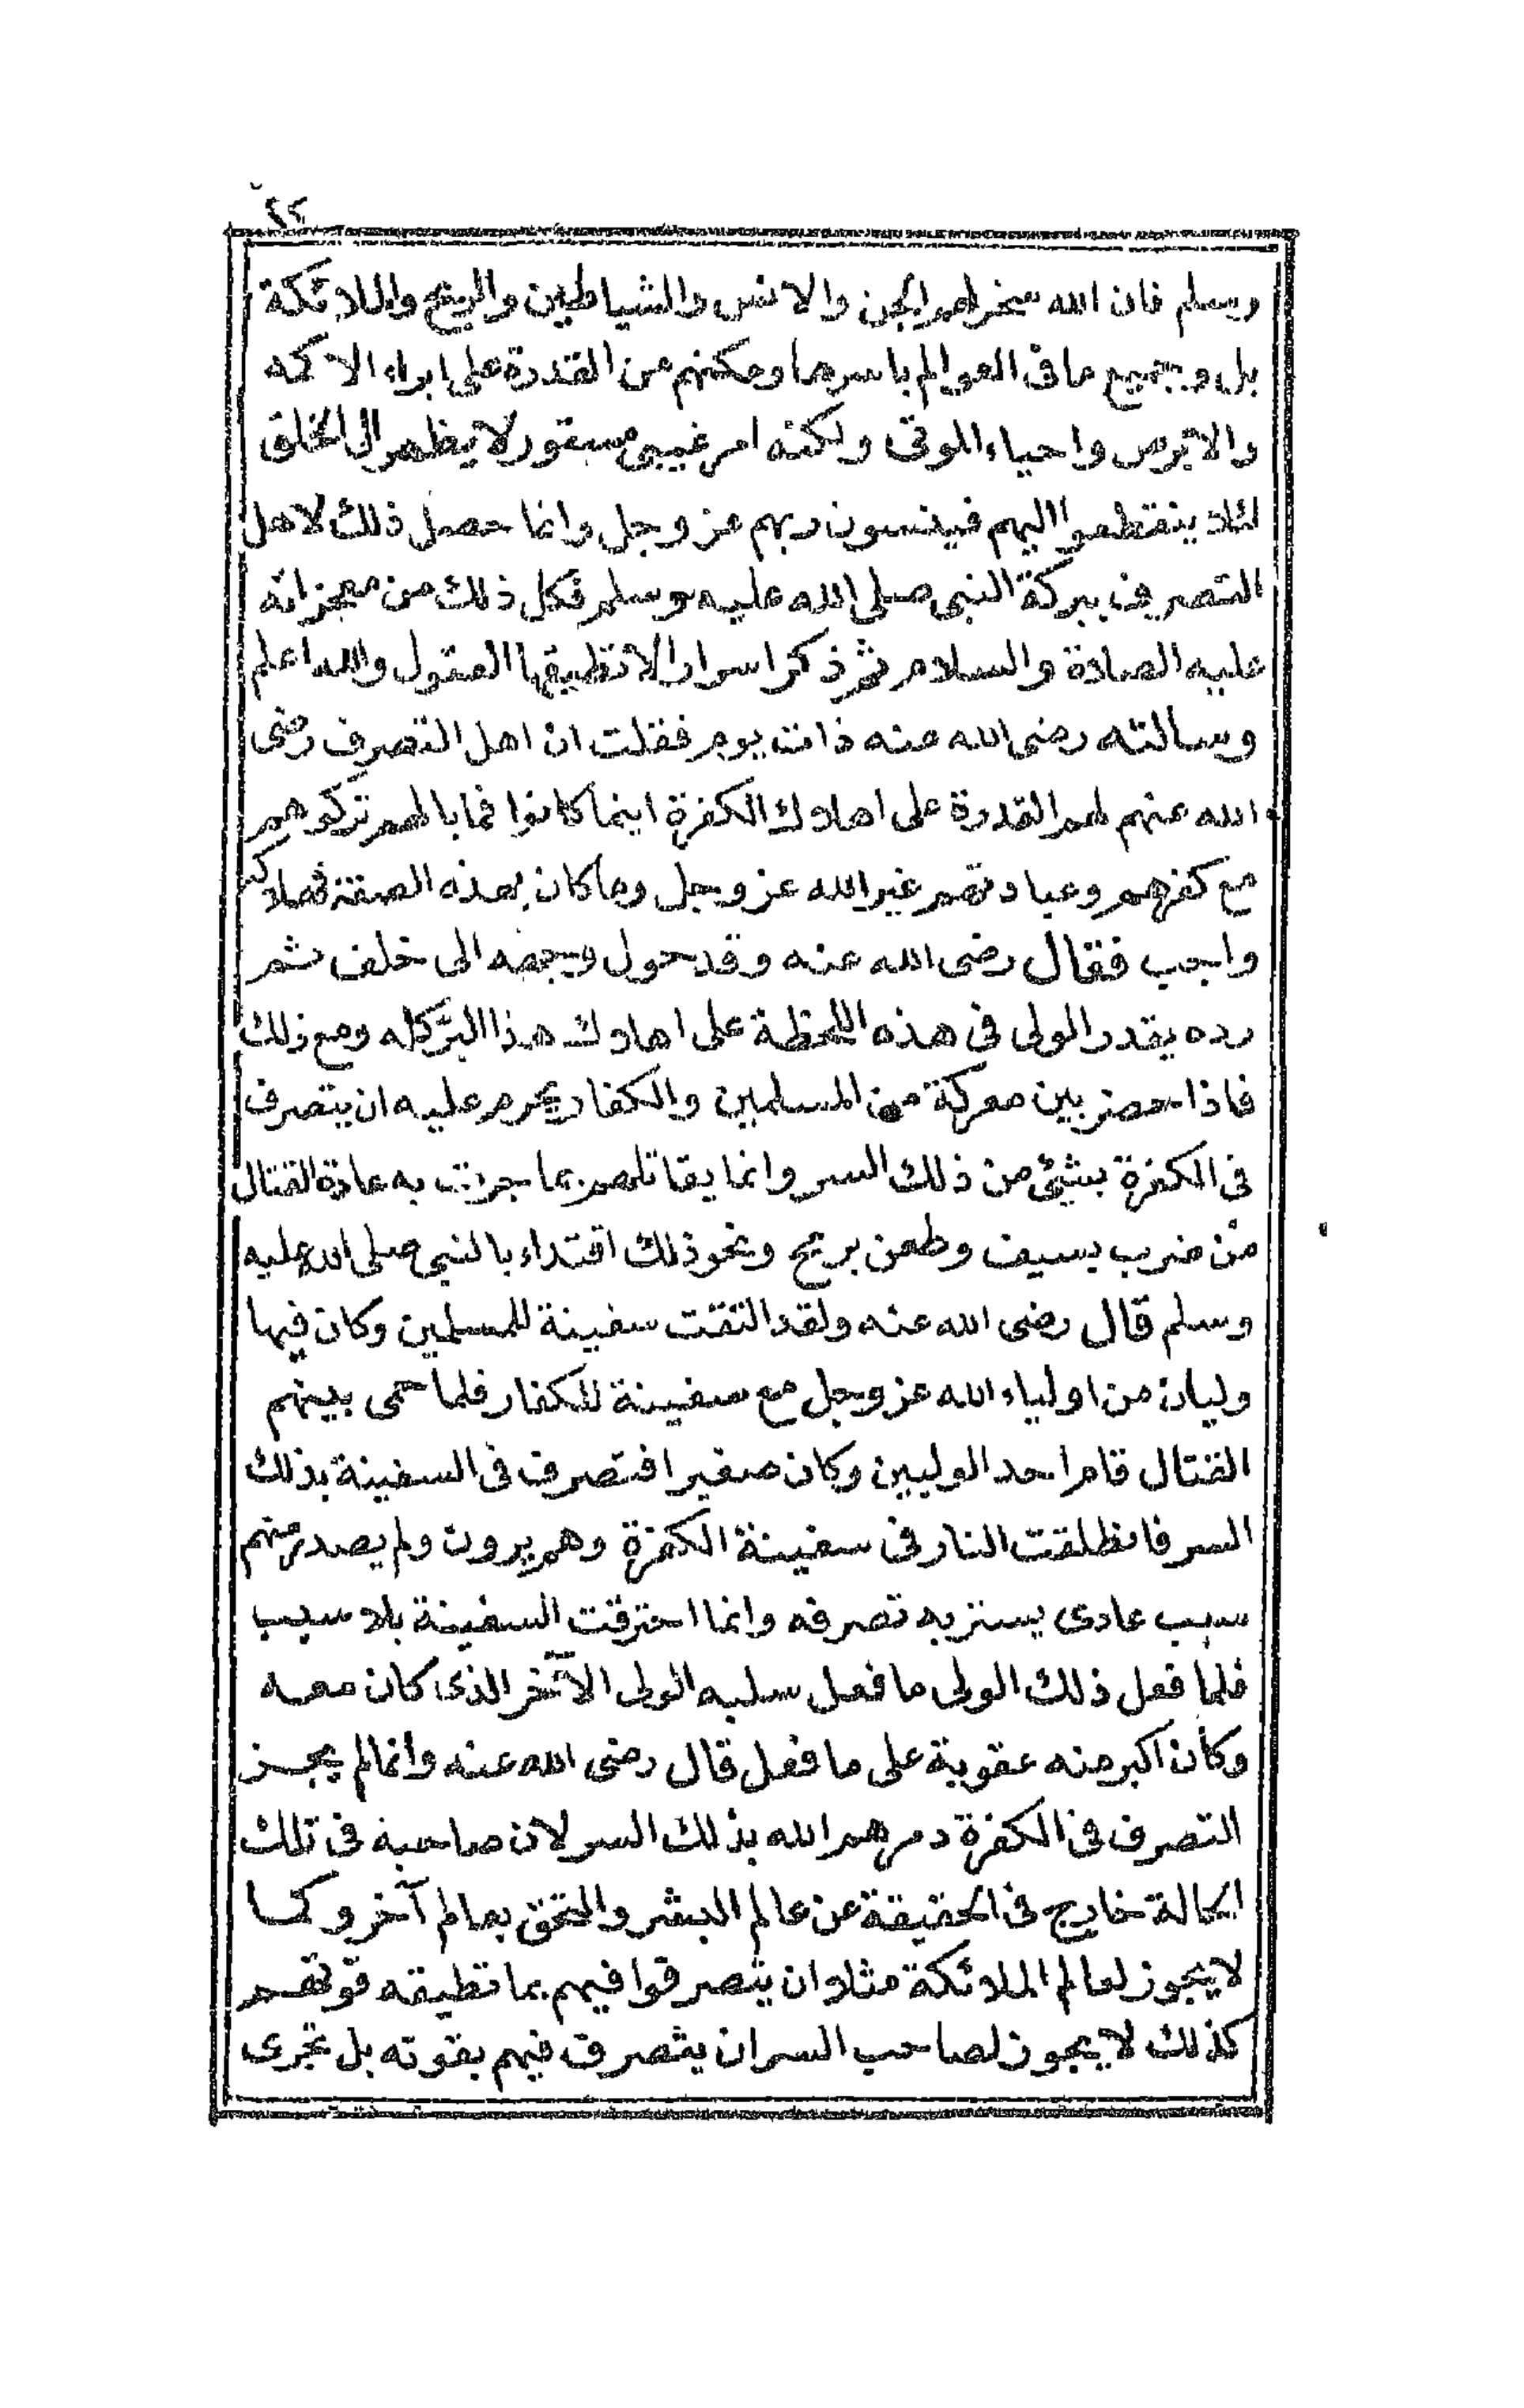 ٢٤
وسلم فان الله سخر لهم الجن والانس والشياطين والريح والملائكة
بل وجميع ما فى العوالم باسرها ومكنهم من القدرة على ابراء الاكمه
والابرص واحياء الموتى ولكنه امر غيبى مستور لا يظهر الى الخلق
لئلا ينقطعوا اليهم فينسون ربهم عز وجل وانما حصل ذلك لاهل
التصريف ببركة النبى صلى الله عليه وسلم فكل ذلك من معجزاته
عليه الصلاة والسلام ثم ذكر اسرارا لا تطيقها العقول والله اعلم
وسالته رضى الله عنه ذات يوم فقلت ان اهل التصرف رضى
الله عنهم لهم القدرة على اهلاك الكفرة اينما كانوا فما بالهم تركوهم
مع كفرهم وعبادتهم غير الله عز وجل وما كان بهذه الصفة فهلاكه
واجب فقال رضى الله عنه وقد حول وجهه الى خلف ثم
رده يقدر الولى فى هذه اللحظة على اهلاك هذا البر كله ومع ذلك
فاذا حضر بين معركة من المسلمين والكفار يحرم عليه ان يتصرف
فى الكفرة بشئ من ذلك السر وانما يقاتلهم بما جرت به عادة القتال
من ضرب بسيف وطعن برمح ونحو ذلك اقتداء بالنبى صلى الله عليه
وسلم قال رضى الله عنه ولقد التقت سفينة للمسلمين وكان فيها
وليان من اولياء الله عز وجل مع سفينة للكفار فلما حمى بينهم
القتال قام احد الوليين وكان صغيرا فتصرف فى السفينة بذلك
السر فانطلقت النار فى سفينة الكفرة وهم يرون ولم يصدر منهم
سبب عادى يستتر به تصرفه وانما احترقت السفينة بلا سبب
فلما فعل ذلك الولى ما فعل سلبه الولى الآخر الذى كان معه
وكان اكبر منه عقوبة على ما فعل قال رضى الله عنه وانما لم يجز
التصرف فى الكفرة دمرهم الله بذلك السر لان صاحبه فى تلك
الحالة خارج فى الحقيقة عن عالم البشر والتحق بعالم آخر وكما
لا يجوز لعالم الملائكة مثلا ان يتصرفوا فيهم بما تطيقه قوتهم
كذلك لا يجوز لصاحب السر ان يتصرف فيهم بقوته بل تجرى